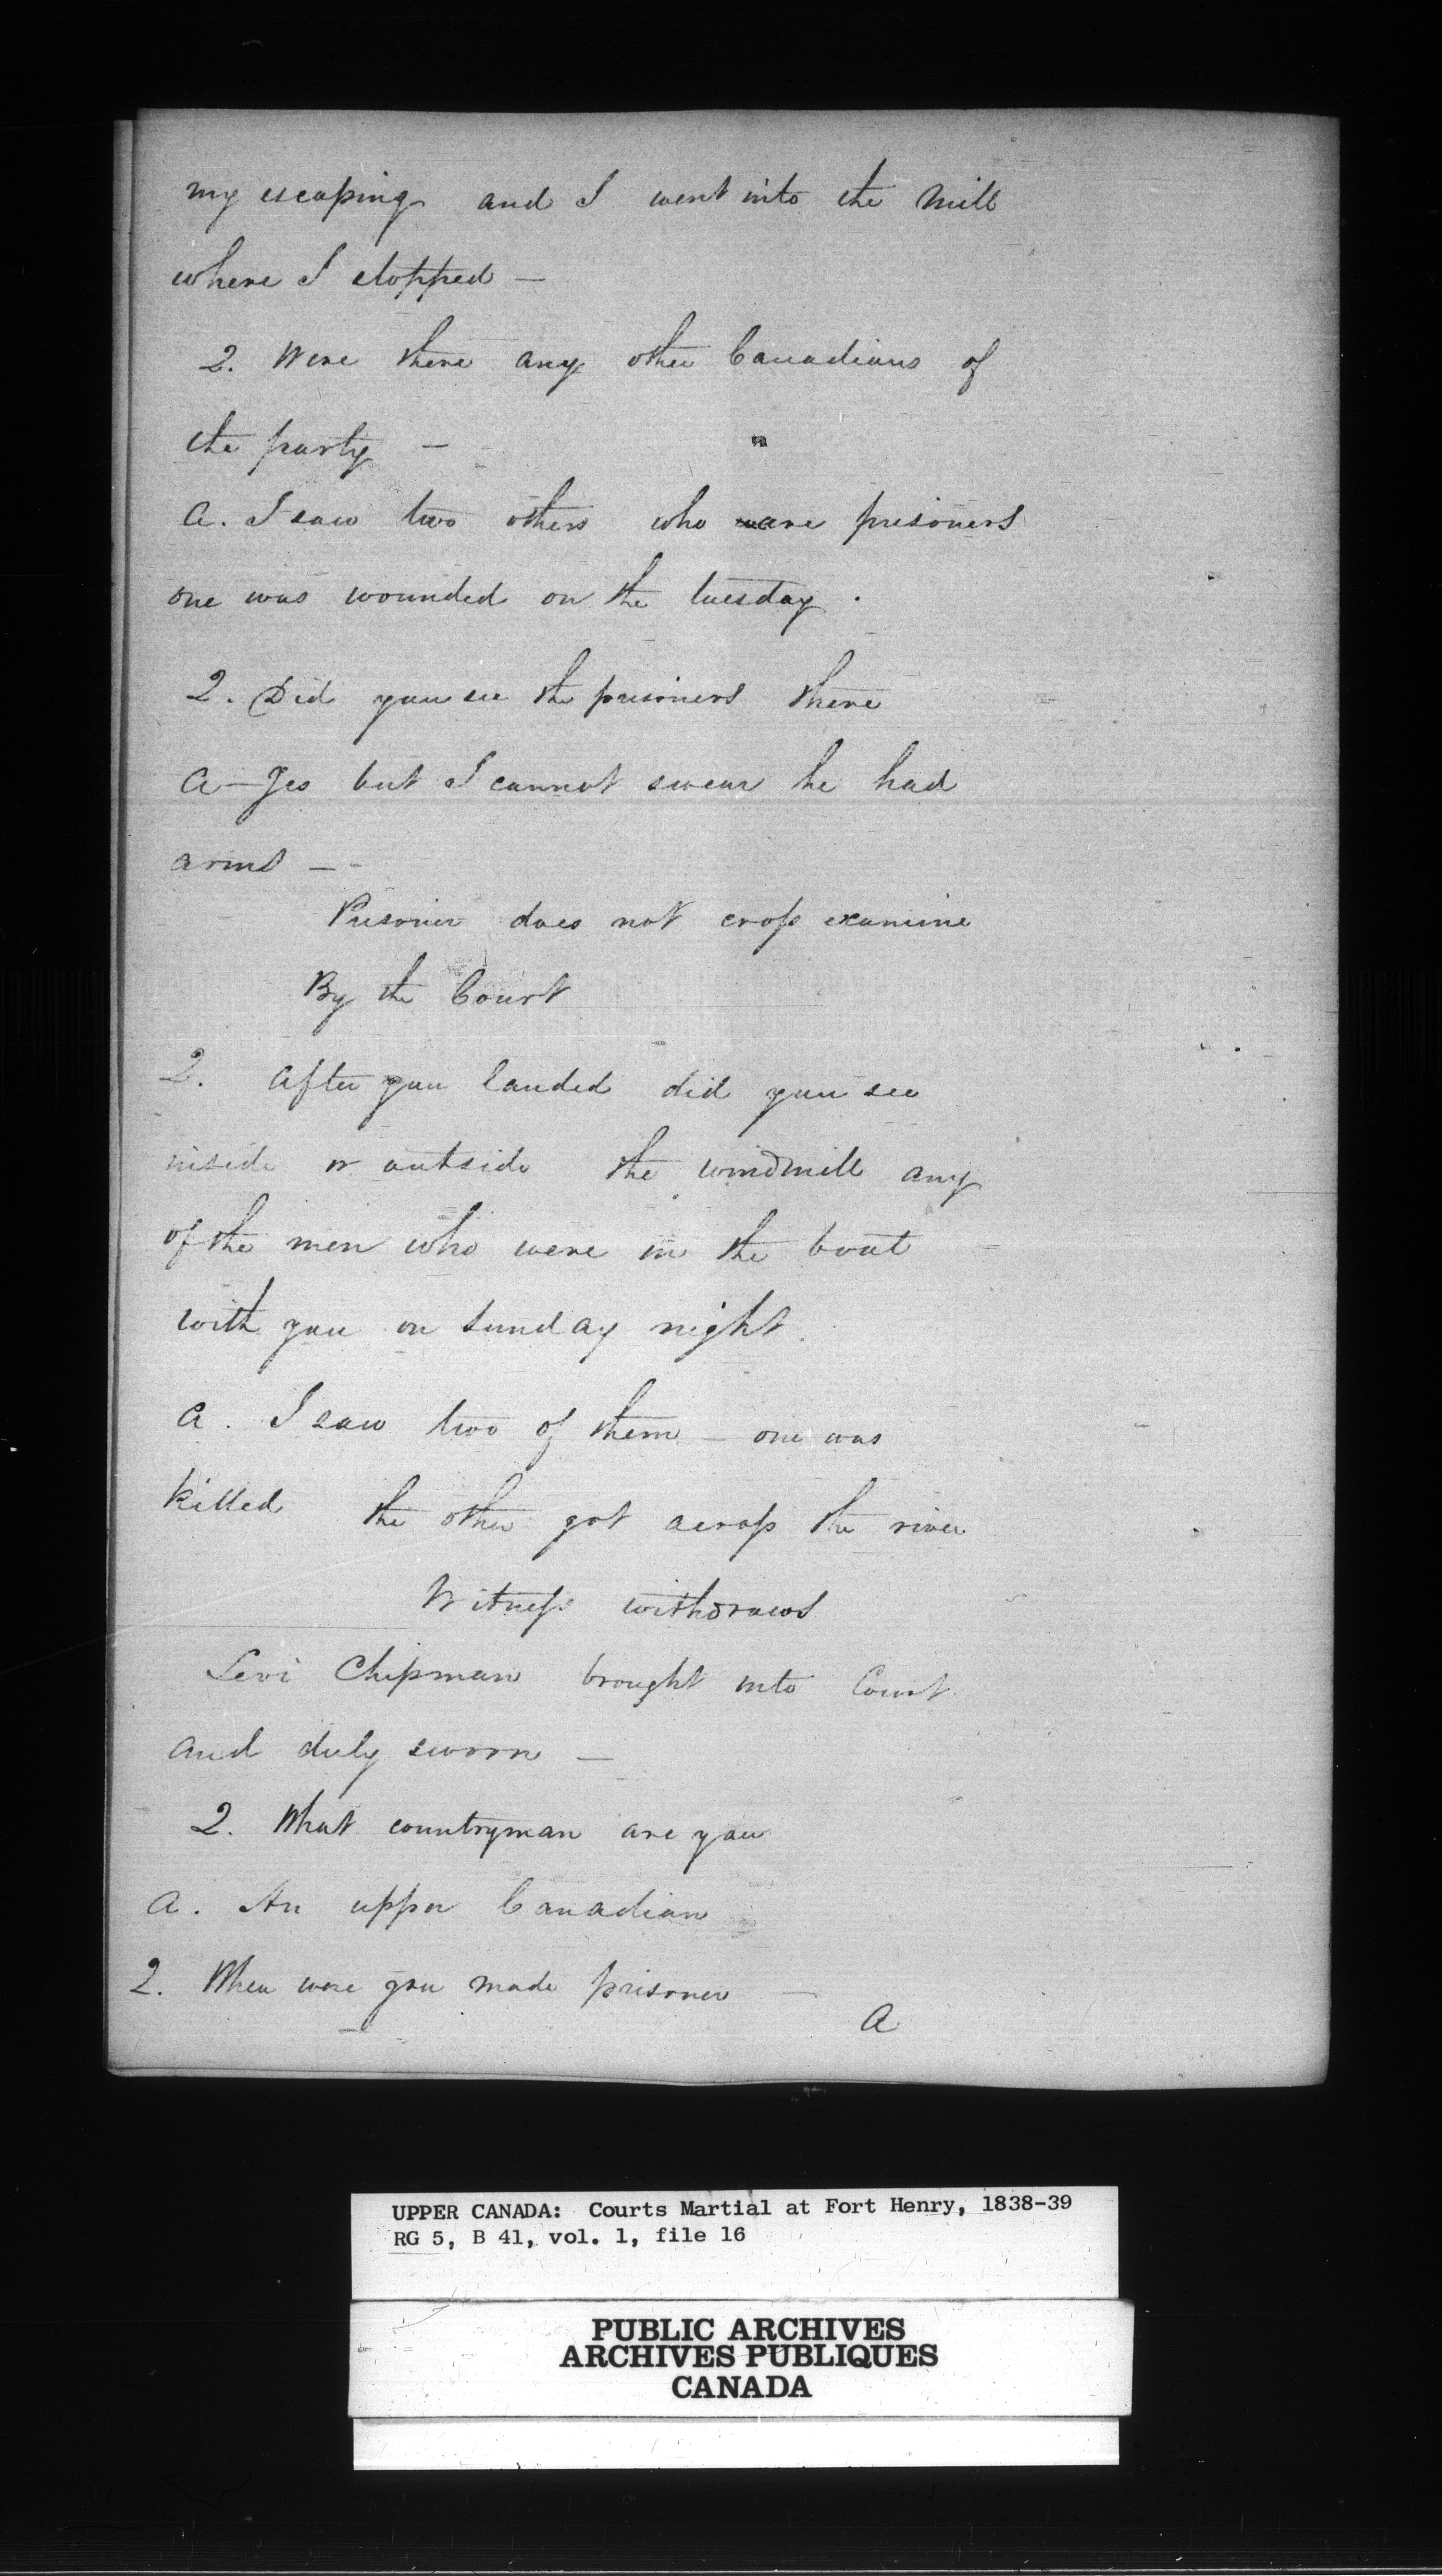 my escaping and I went into the Mill
where I stopped –
Q. Were there any other Canadians of
the party –
A. I saw two others who were prisoners
one was wounded on the tuesday.
Q. Did you see the prisoners there
A – Yes but I cannot swear he had
arms – –
Prisoner does not cross examine
By the Court
Q. After you landed did you see
inside or outside the windmill any
of the men who were in the boat
with you on Sunday night.
A. I saw two of them – one was
killed the other got across the river
Witness withdraws
Levi Chipman brought into Court
and duly sworn –
Q. What countryman are you
A. An upper Canadian
Q. When were you made prisoner –
A
UPPER CANADA: Courts Martial at Fort Henry, 1838-39
RG 5, B 41, vol. 1, file 16
PUBLIC ARCHIVES
ARCHIVES PUBLIQUES
CANADA